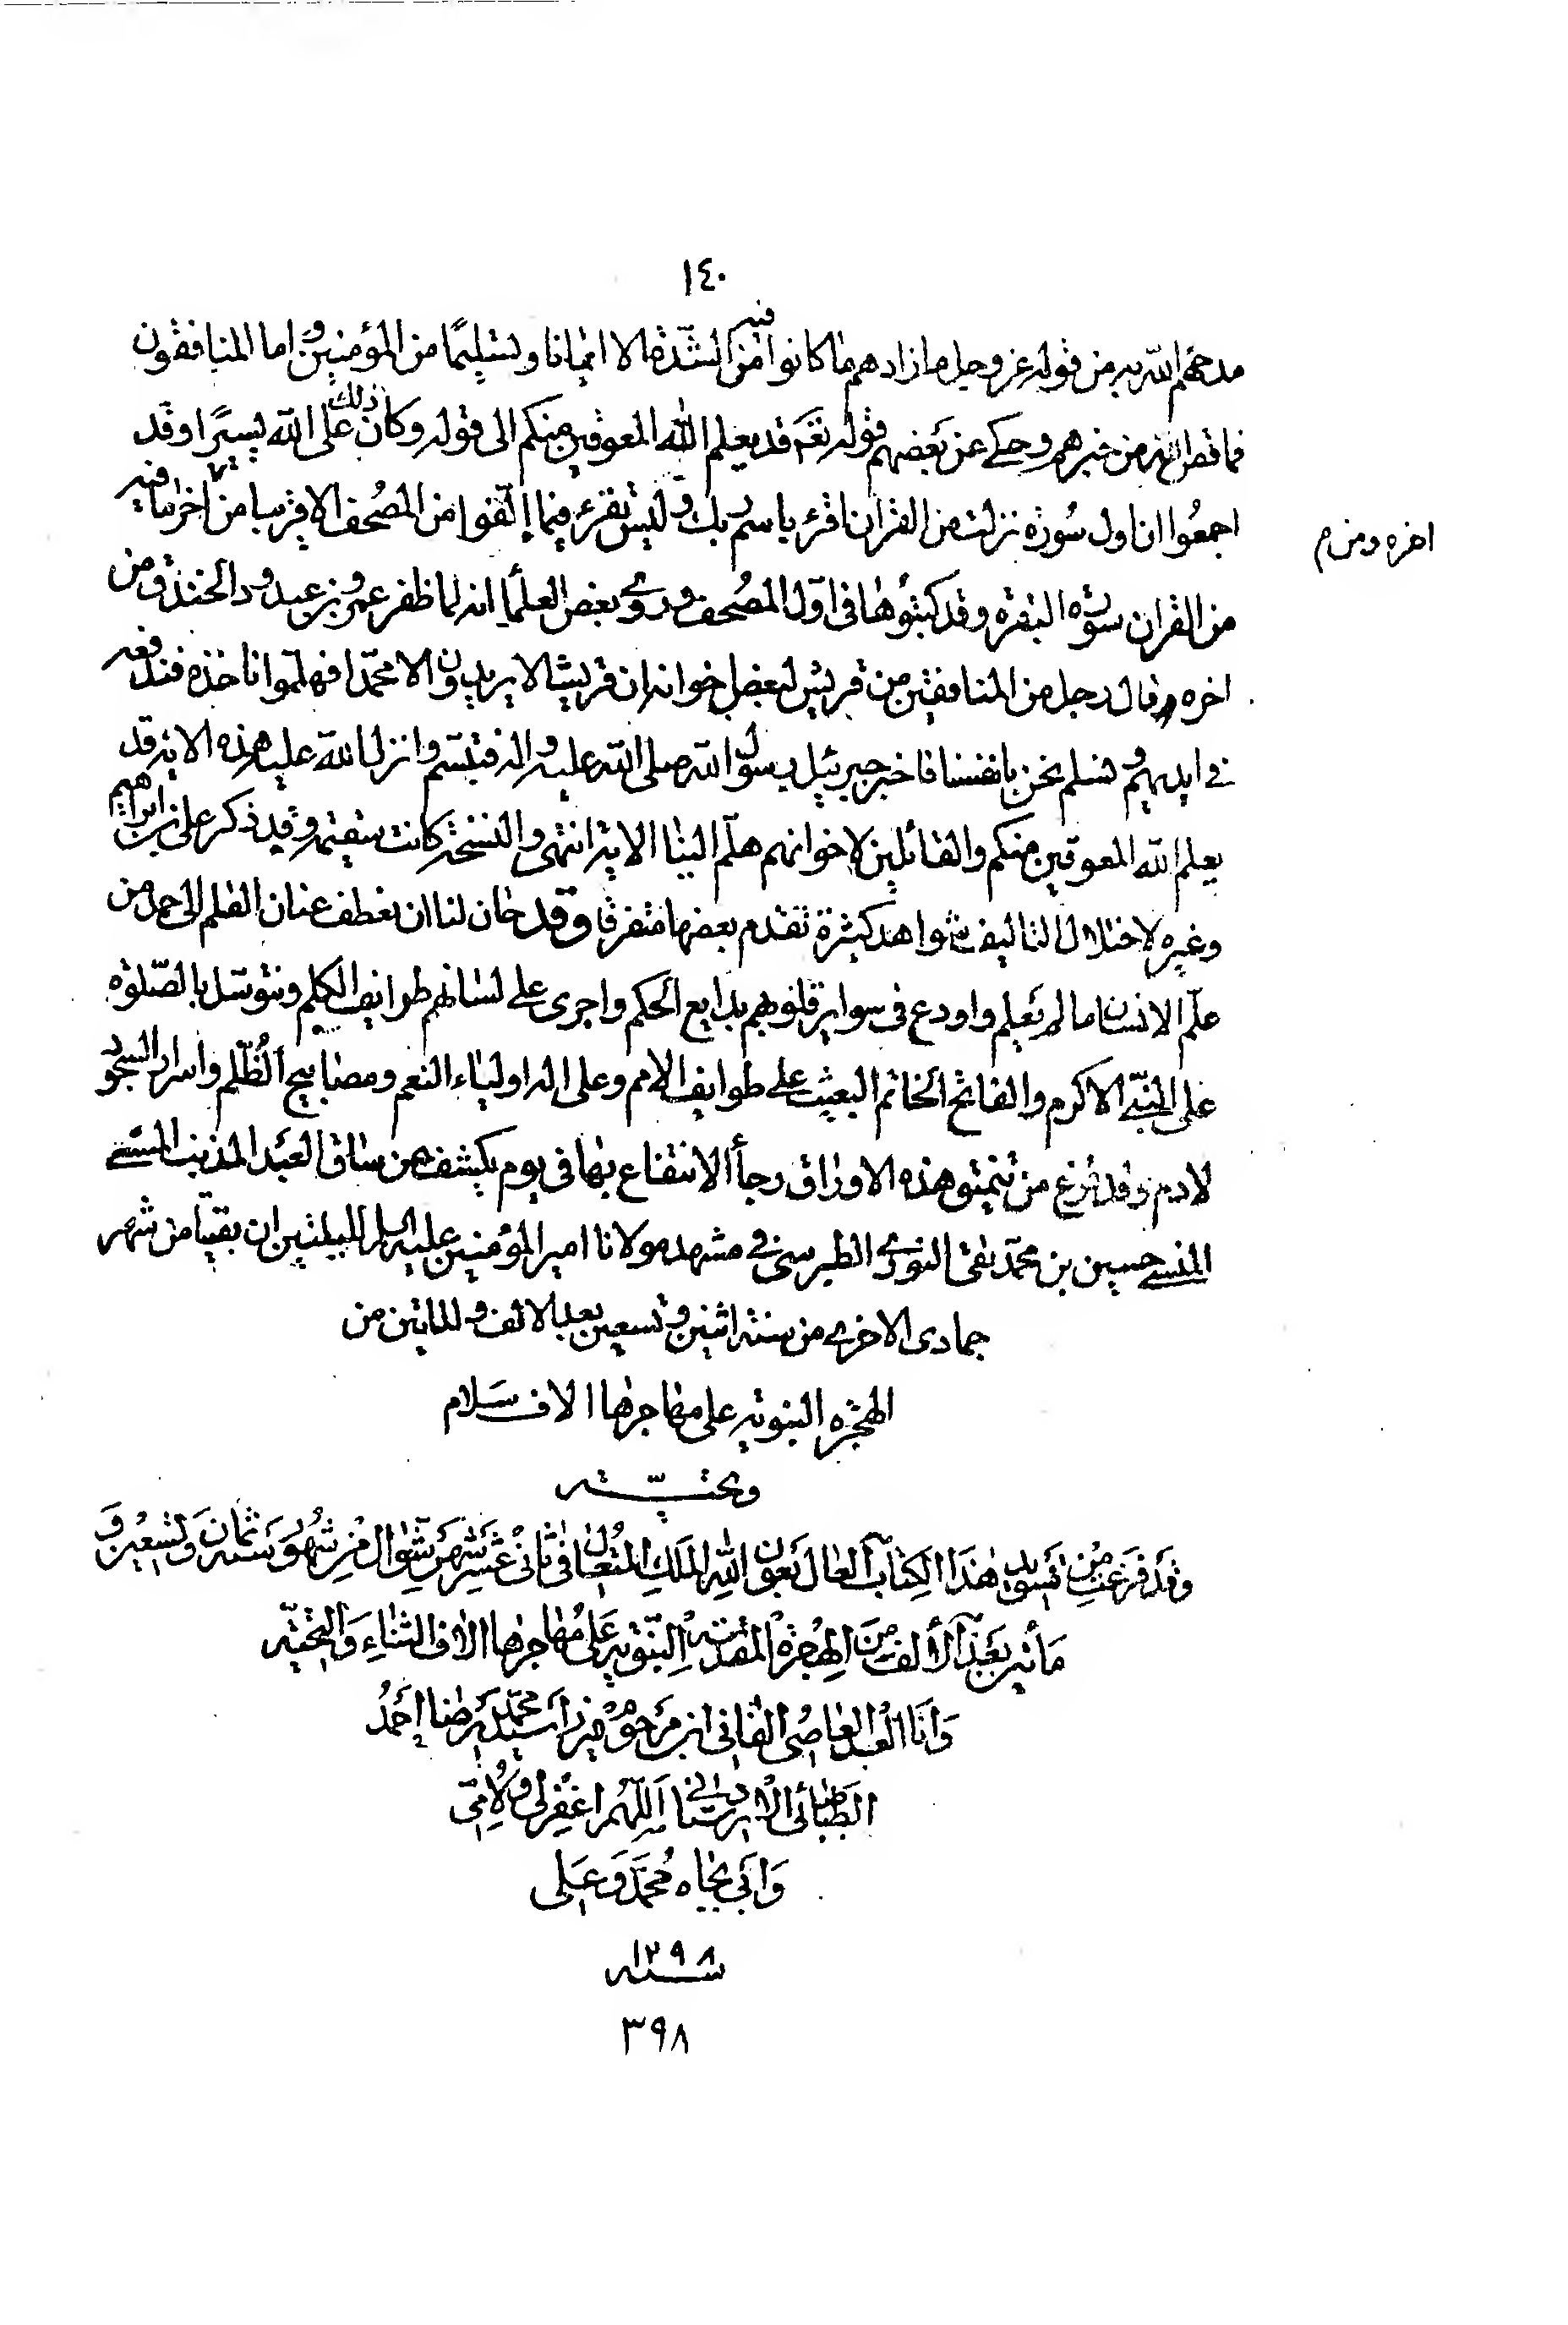 ١٤٠
مدحهم الله به من قوله عز وجل ما زادهم ما كانوا فيه من الشدة الا ايمانا وتسليما من المؤمنين واما المنافقون
فما قص الله من خبرهم وحكى عن بعضهم قوله تعالى قد يعلم الله المعوقين منكم الى قوله وكان ذلك على الله يسيرا وقد
اجمعوا ان اول سورة نزلت من القران اقرء باسم ربك وليس تقرء فيما الفوا من المصحف الا قريبا من اخره
اخره ومن م
من القران سورة البقرة وقد كتبوها فى اول المصحف وروى بعض العلماء انه لما ظفر عمرو بن عبد ود الخندق من
اخره قال رجل من المنافقين من قريش لبعض اخوانه ان قريشا لا يريدون الا محمدا فهلموا ناخذه فندفعه
فى ايديهم ونسلم نحن بانفسنا فاخبر جبرئيل رسول الله صلى الله عليه واله فتبسم وانزل الله عليه هذه الاية قد
يعلم الله المعوقين منكم والقائلين لاخوانهم هلم الينا الاية انتهى والنسخة كانت سقيمة وقد ذكر على بن ابراهيم
وغيره لاختلال التاليف شواهد كثيرة تقدم بعضها متفرقا وقد حان لنا ان نعطف عنان القلم الى حمد من
علم الانسان ما لم يعلم واودع فى سواير قلوبهم بدايع الحكم واجرى على لسانهم طرايف الكلم ونتوسل بالصلوة
على النبى الاكرم والفاتح الخاتم البعيث على طوايف الامم وعلى اله اولياء النعم ومصابيح الظلم واسرار السجود
لادم وقد فرغ من تنميق هذه الاوراق رجاء الانتفاع بها فى يوم يكشف عن ساق العبد المذنب المسئ
المنسى حسين بن محمد تقى النورى الطبرسى فى مشهد مولانا امير المؤمنين عليه السلم لليلتين ان بقيتا من شهر
جمادى الاخرى من سنة اثنين وتسعين بعد الالف والمايتين من
الهجرة النبوية على مهاجرها الاف سلام
وتحية
وقد فرغت من تسويد هذا الكتاب العال بعون الله الملك المتعال فى ثانى عشر شهر شوال من شهور سنة ثمان وتسعين و
مأتين بعد الألف من الهجرة المقدسة النبوية على مهاجرها الاف الثناء والتحية
وانا العبد العاصى الفانى ابن مرحوم ميرزا سيد محمد رضا احمد
الطباطبائى الاردستانى اللهم اغفر لى ولامى
وابى بجاه محمد وعلى
سنة ١٢٩٨
٣٩٨